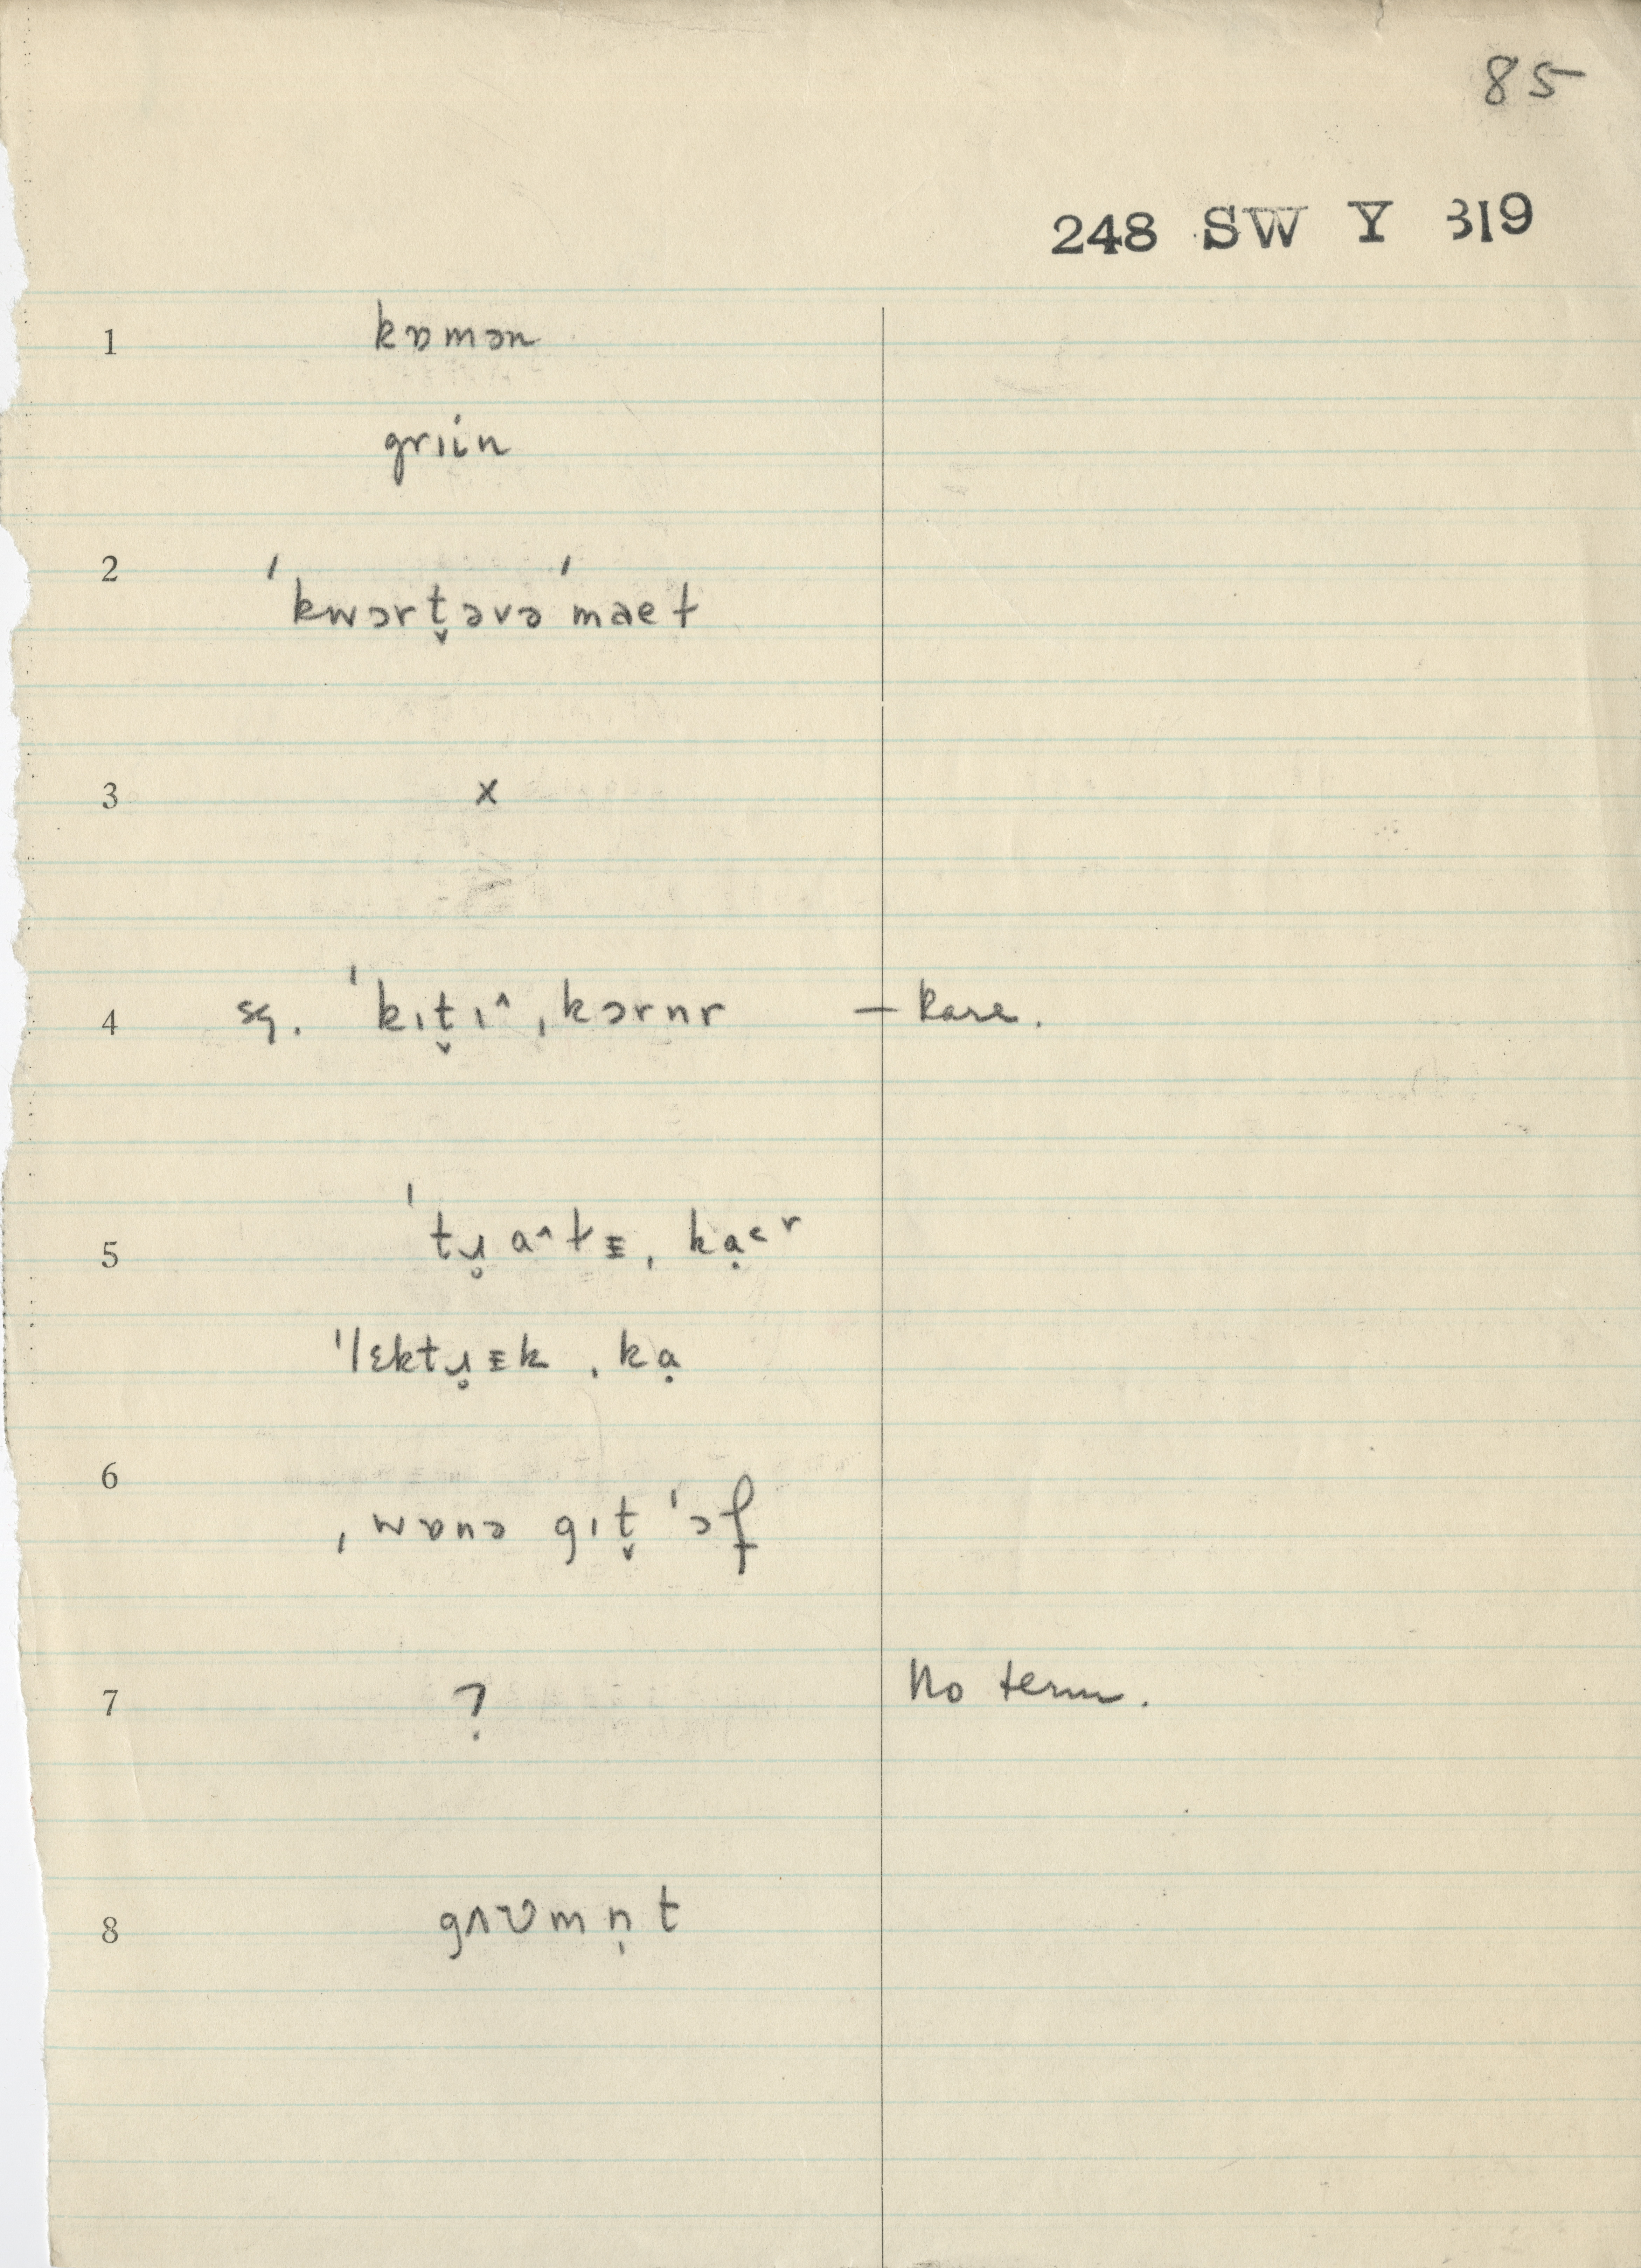 85
248 SW Y 319
1 kɒmən
grɪin
2 ˈkwɔrt̬əvəˈmaet
3 x
4 sg. ˈkɪt̬ɪ^ˌkɔrnr – Rare.
5 ˈtɹ̥a^tᴲˌkạɛr
ˈlɛktɹ̥ᴲkˌkạ
6 ˌwɒnə gɪt̬ ˈɔf
7 ? No term.
8 gʌʋmn̩t